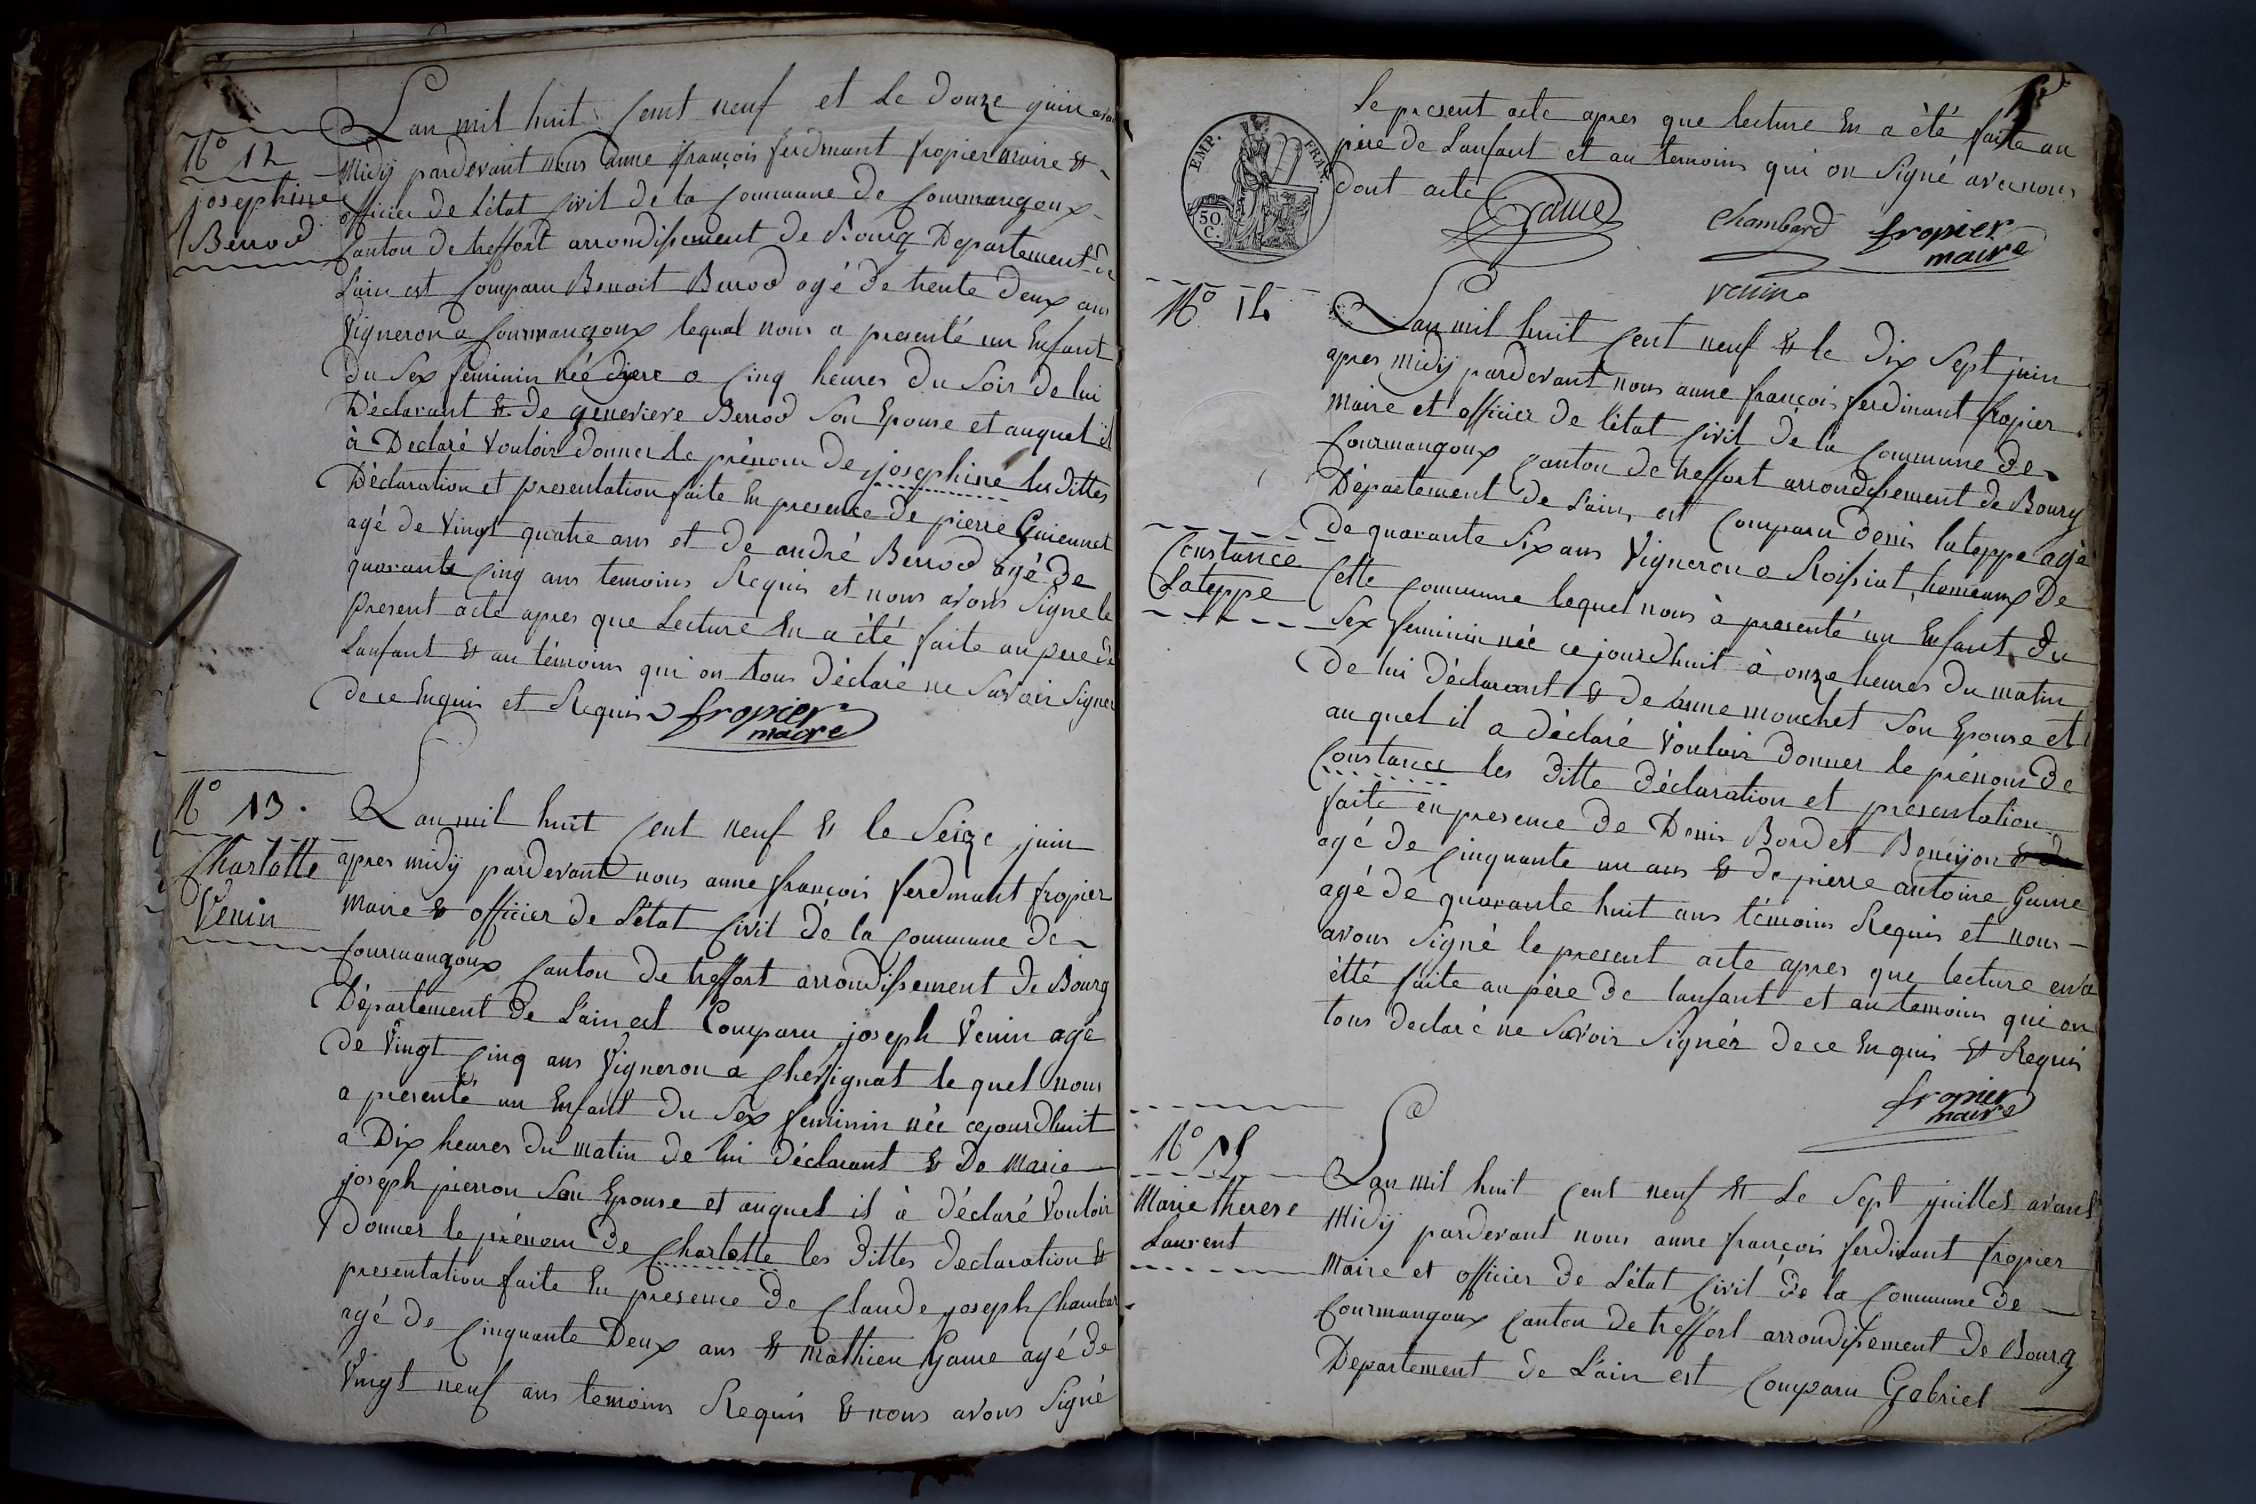 N° 12
josephine
Berrod
Lan mil huit Cent neuf et le douze juin avant
Midÿ pardevant nous anne françois ferdinant fropier maire et
officier de l'état Civil de la Commune de Courmangoux
Canton de treffort arrondissement de Bourg Departement de
L'ain est Comparu Benoit Berrod agé de trente deux ans
Vigneron a Courmangoux lequel nous a presenté un Enfant
du Sex feminin née dyere a Cinq heures du Soir de lui
Déclarant et de genevieve Berrod Son Epouse et auquel il
à Declaré Vouloir donner le prénom de josephine les dittes
Déclaration et presentation faite En presence de pierre Guiennet
agé de Vingt quatre ans et de andré Berrod agé de
quarante Cinq ans temoins Requis et nous avons Signe le
present acte apres que Lecture En a été faite au pere de
Lanfant et au témoins qui on tous Déclaré ne Savoir Signer
de ce Enquis et Requis fropier
maire
N° 13.
Charlotte
Venin
Lan mil huit Cent neuf et le Seize juin
apres midÿ pardevant nous anne françois ferdinant fropier
Maire et officier de L'état Civil de la Commune de
Courmangoux Canton de treffort arrondissement de Bourg
Département de L'ain est Comparu joseph Venin agé
de Vingt Cinq ans Vigneron a Chevignat le quel nous
a presenté un Enfant du Sex feminin née cejourdhuit
a Dix heures du matin de lui déclarant et De marie
joseph pierron Son Epouse et auquel il à Déclaré Vouloir
Donner le prénom de Charlotte les dittes declaration et
presentation faite En presence de Claude joseph Chambar
agé de Cinquante Deux ans et mathieu Game agé de
Vingt neuf ans temoins Requis et nous avons Signé
EMP. FRAN.
50.
C.
le present acte apres que lecture En a été faite au
père de Lanfant et au temoins qui on Signé avec nous
dont acte Game Chambard fropier
maire
venin
N° 14
Constance
Lateppe
Lan mil huit Cent neuf et le dix Sept juin
apres midÿ pardevant nous anne françois ferdinant fropier
Maire et officier de l'état Civil de la Commune de
Courmangoux Canton de treffort arrondissement de Bourg
Département de L'ain, est Comparu denis lateppe agé
de quarante Six ans Vigneron a Roissiat, hameaux De
Cette Commune lequel nous à presenté un Enfant du
Sex feminin née cejourdhuit à onze heures du matin
de lui Déclarant et de anne mouchet Son Epouse et
au quel il a déclaré Vouloir Donner le prénom de
Constance les ditte déclaration et presentation
faite en presence de Denis Bordet
agé de Cinquante un ans et de pierre antoine Game
agé de quarante huit ans témoins Requis et nous
avons Signé le present acte apres que lecture en a
étté faite au père de lanfant et au temoins qui on
tous declaré ne Savoir Signér de ce Enquis et Requis
fropier
maire
N° 15
Marie therese
Laurent
Lan mil huit Cent neuf et Le Sept juillet avant
Midÿ pardevant nous anne françois ferdinant fropier
Maire et officier de L'état Civil de la Commune de
Courmangoux Canton de treffort arrondissement de Bourg
Departement de L'ain est Comparu Gabriel